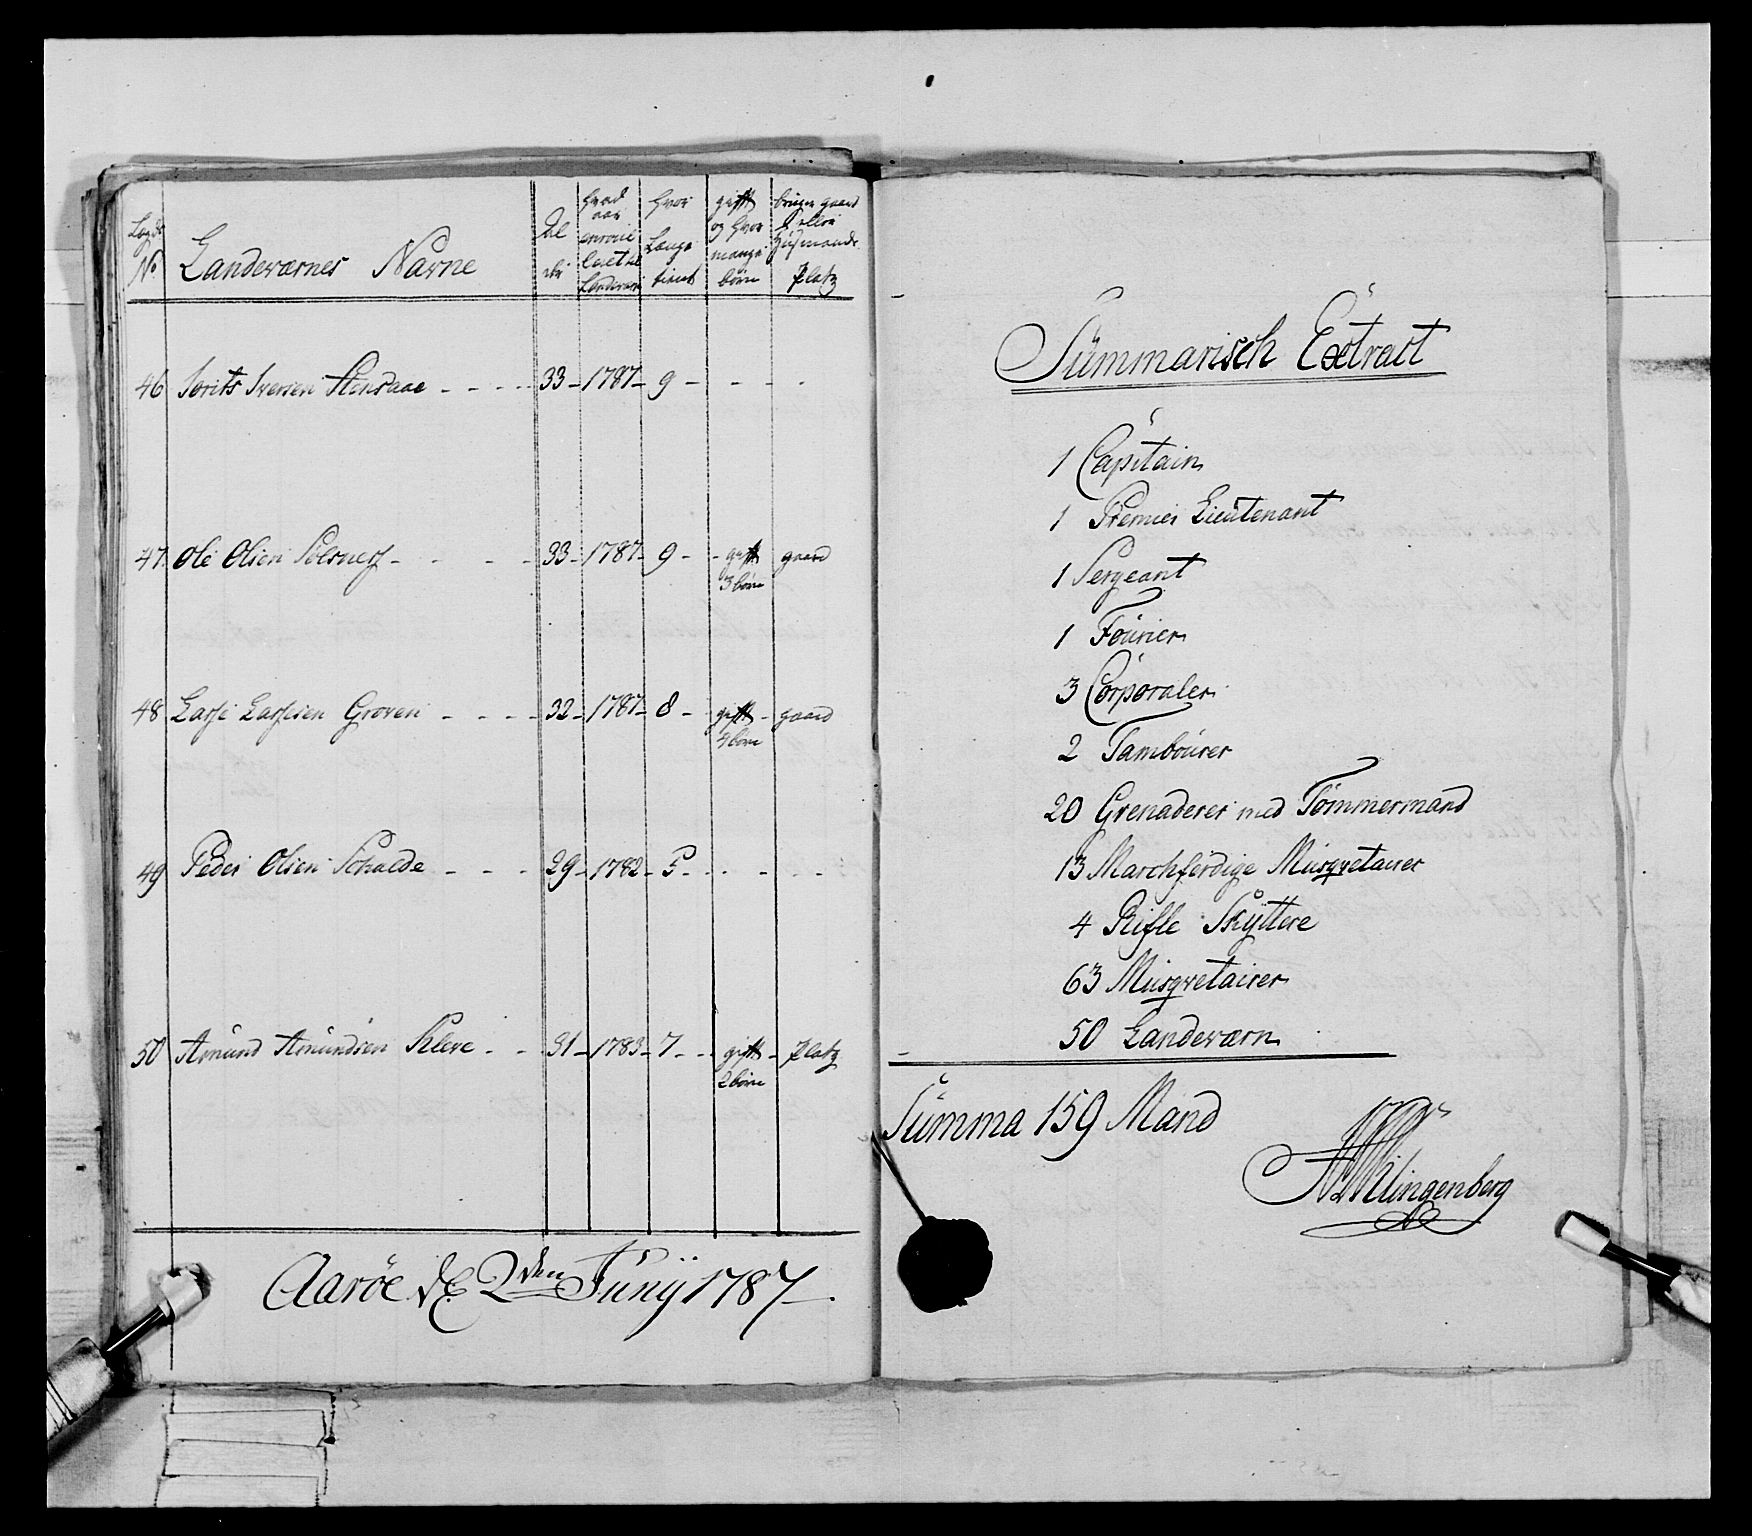 Landeværnes Navne
No
hvad aar
hvor Længe tient
gift og hvor mange børn
bruger gaard eller Huusmands Platz
46 Iversen - - - - 33 - 1787 - 9 - - - -
47 Ole Olsen - - - - 33 - 1787 - 9 - - gift gaard
3 børn
48 Larse Larsesen Groven - - - - 32 - 1787 - 8 - gift - gaard
4 børn
49 Peder Olsen - - - 29 - 1782 - 5 - - - - -
50 Amund Amundsen Kleve - - 31 - 1783 - 7 - - gift - Platz
2 børn
Aarøe d. 2den Junij 1787
Summarisch Extract
1 Capitain
1 Premier Lieutenant
1 Sergeant
1 Fourier
3 Corporaler
2 Tambourer
20 Grenaderer med Tømmermand
13 Marchferdige Musqvetairer
4 Rifle Skyttere
63 Musqvetairer
50 Landeværn
Summa 159 Mand
Klingenberg